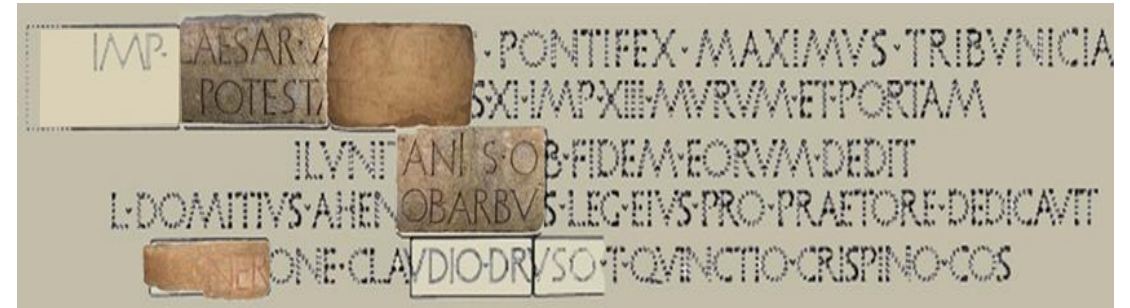 IMP· CAESAR· A S · PONTIFEX · MAXIMVS · TRIBVNICIA
POTESTA SXI·IMP·XIII·MVRVM·ET·PORTAM
ILVNITANIS·OB·FIDEM·EORVM·DEDIT
L·DOMITIVS·AHENOBARBVS·LEG·EIVS·PRO·PRAETORE·DEDICAVIT
NERONE·CLAVDIO·DRVSO·T·QVINCTIO·CRISPINO·COS